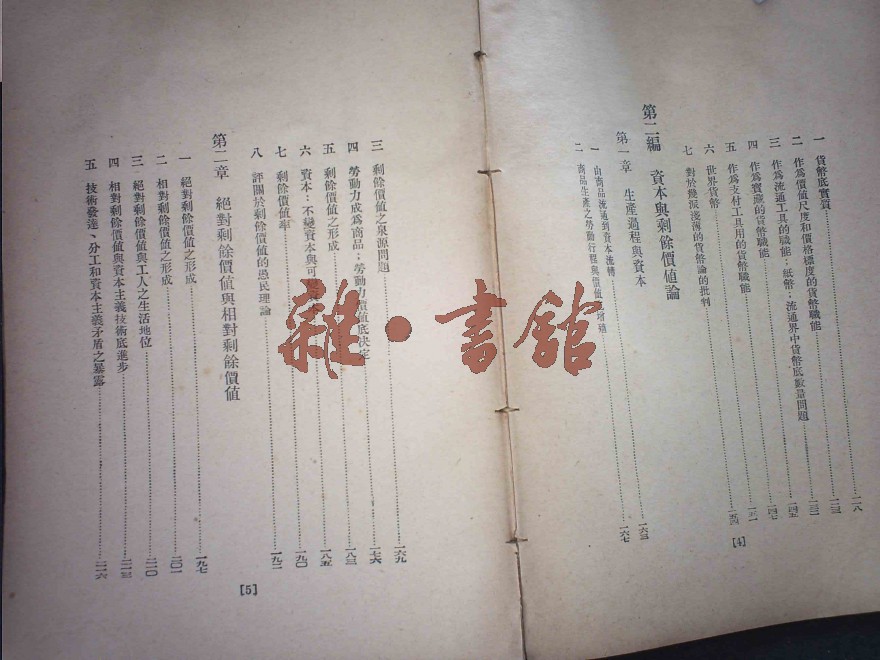 一 貨幣底實質 一一八
二 作爲價值尺度和價格標度的貨幣職能
三 作爲流通工具的職能；紙幣；流通界中貨幣底數量問題
四 作爲寶藏的貨幣職能
五 作爲支付工具用的貨幣職能 一五四
六 世界貨幣
七 對於幾派淺薄的貨幣論的批判
第二編 資本與剩餘價値論
第一章 生產過程與資本
一 由商品流通到資本流轉 一六三
二 商品生產之勞動行程與價值 一六七
[4]
三 剩餘價值之泉源問題 一六九
四 勞動力成爲商品；勞動力價值底決定 一七六
五 剩餘價值之形成 一八三
六 資本：不變資本與可變 一八五
七 剩餘價值率 一九〇
八 評關於剩餘價值的愚民理論 一九二
第二章 絕對剩餘價值與相對剩餘價値
一 絕對剩餘價值之形成 一九七
二 相對剩餘價值之形成 二〇一
三 絕對剩餘價值與工人之生活地位 二一〇
四 相對剩餘價值與資本主義技術底進步 二一三
五 技術發達、分工和資本主義矛盾之暴露 二一六
[5]
雜·書舘